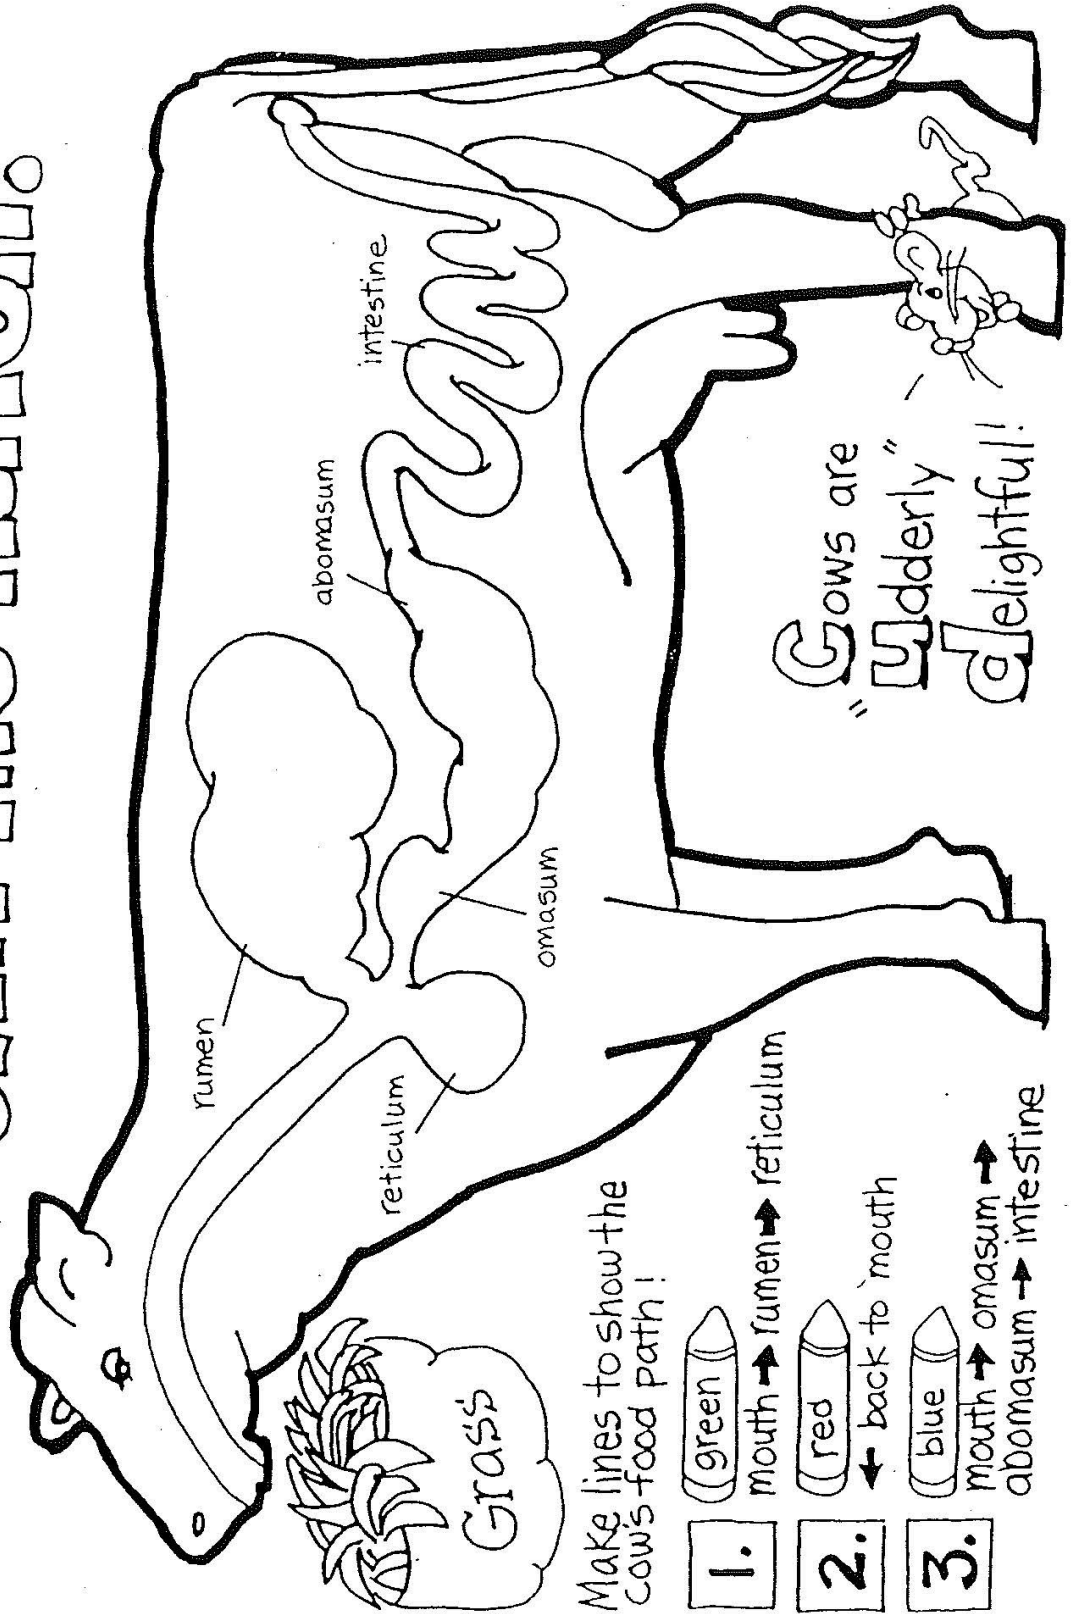 rumen
reticulum
omasum
abomasum
intestine
Grass
Make lines to show the
cow's food path!
1. green
mouth → rumen → reticulum
2. red
← back to mouth
3. blue
mouth → omasum →
abomasum → intestine
Cows are
"Udderly"
delightful!